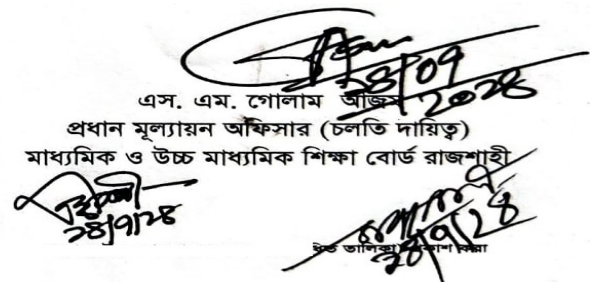 ২৪/০৭
২০২৪
এস. এম. গোলাম আজম
প্রধান মূল্যায়ন অফিসার (চলতি দায়িত্ব)
মাধ্যমিক ও উচ্চ মাধ্যমিক শিক্ষা বোর্ড রাজশাহী
২৪/৭/২৪
২৪/৭/২৪
তালিকা